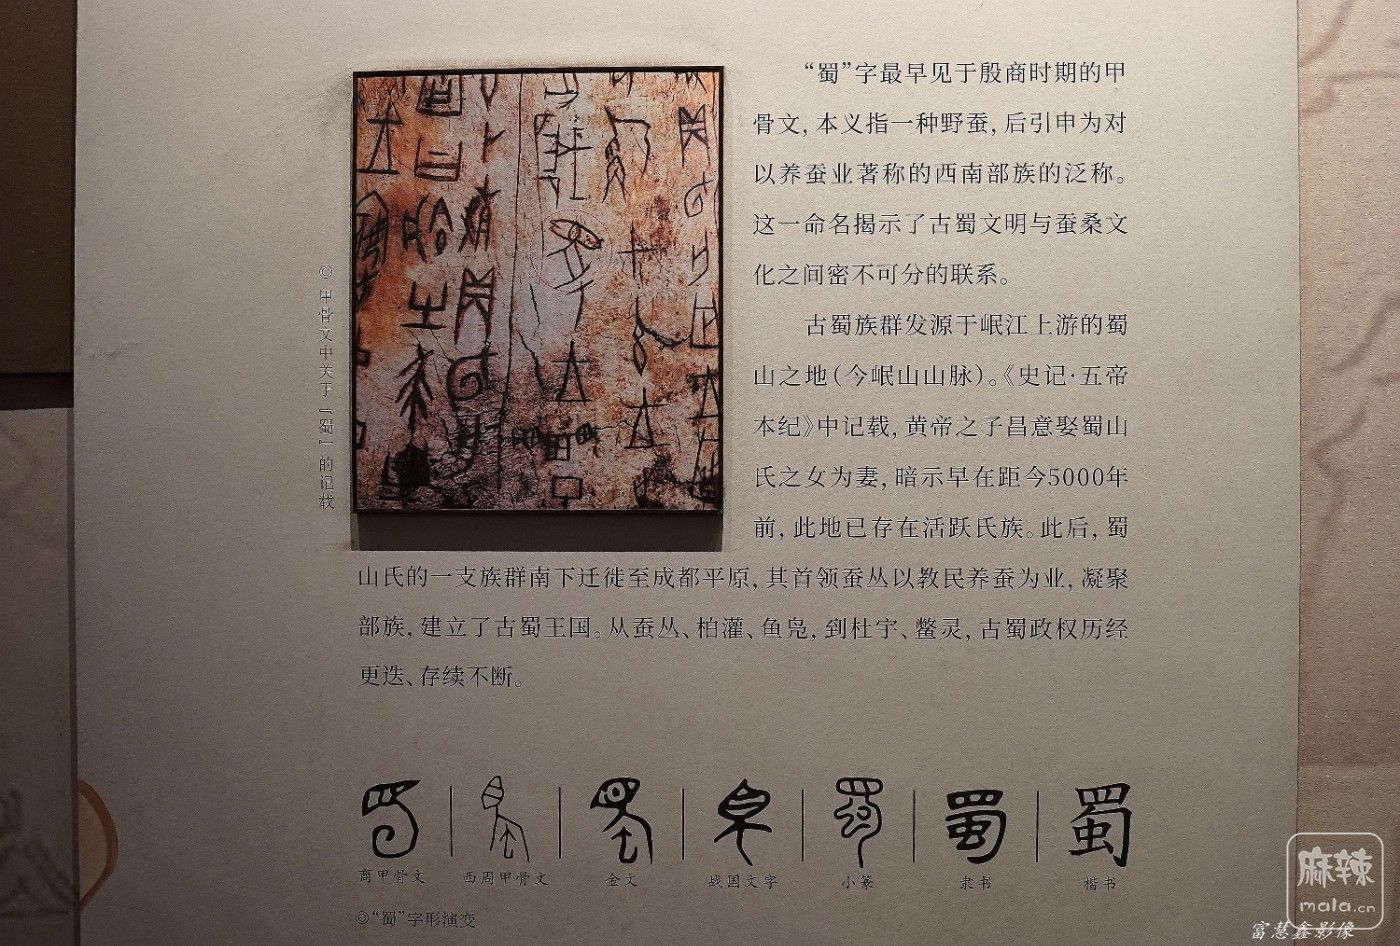 “蜀”字最早见于殷商时期的甲
骨文，本义指一种野蚕，后引申为对
以养蚕业著称的西南部族的泛称。
这一命名揭示了古蜀文明与蚕桑文
化之间密不可分的联系。
古蜀族群发源于岷江上游的蜀
山之地（今岷山山脉）。《史记·五帝
本纪》中记载，黄帝之子昌意娶蜀山
氏之女为妻，暗示早在距今5000年
前，此地已存在活跃氏族。此后，蜀
山氏的一支族群南下迁徙至成都平原，其首领蚕丛以教民养蚕为业，凝聚
部族，建立了古蜀王国。从蚕丛、柏灌、鱼凫，到杜宇、鳖灵，古蜀政权历经
更迭、存续不断。
◎ 甲骨文中关于「蜀」的记载
蜀
商甲骨文
西周甲骨文
金文
战国文字
小篆
隶书
楷书
◎“蜀”字形演变
麻辣
mala.cn
富慧鑫影像